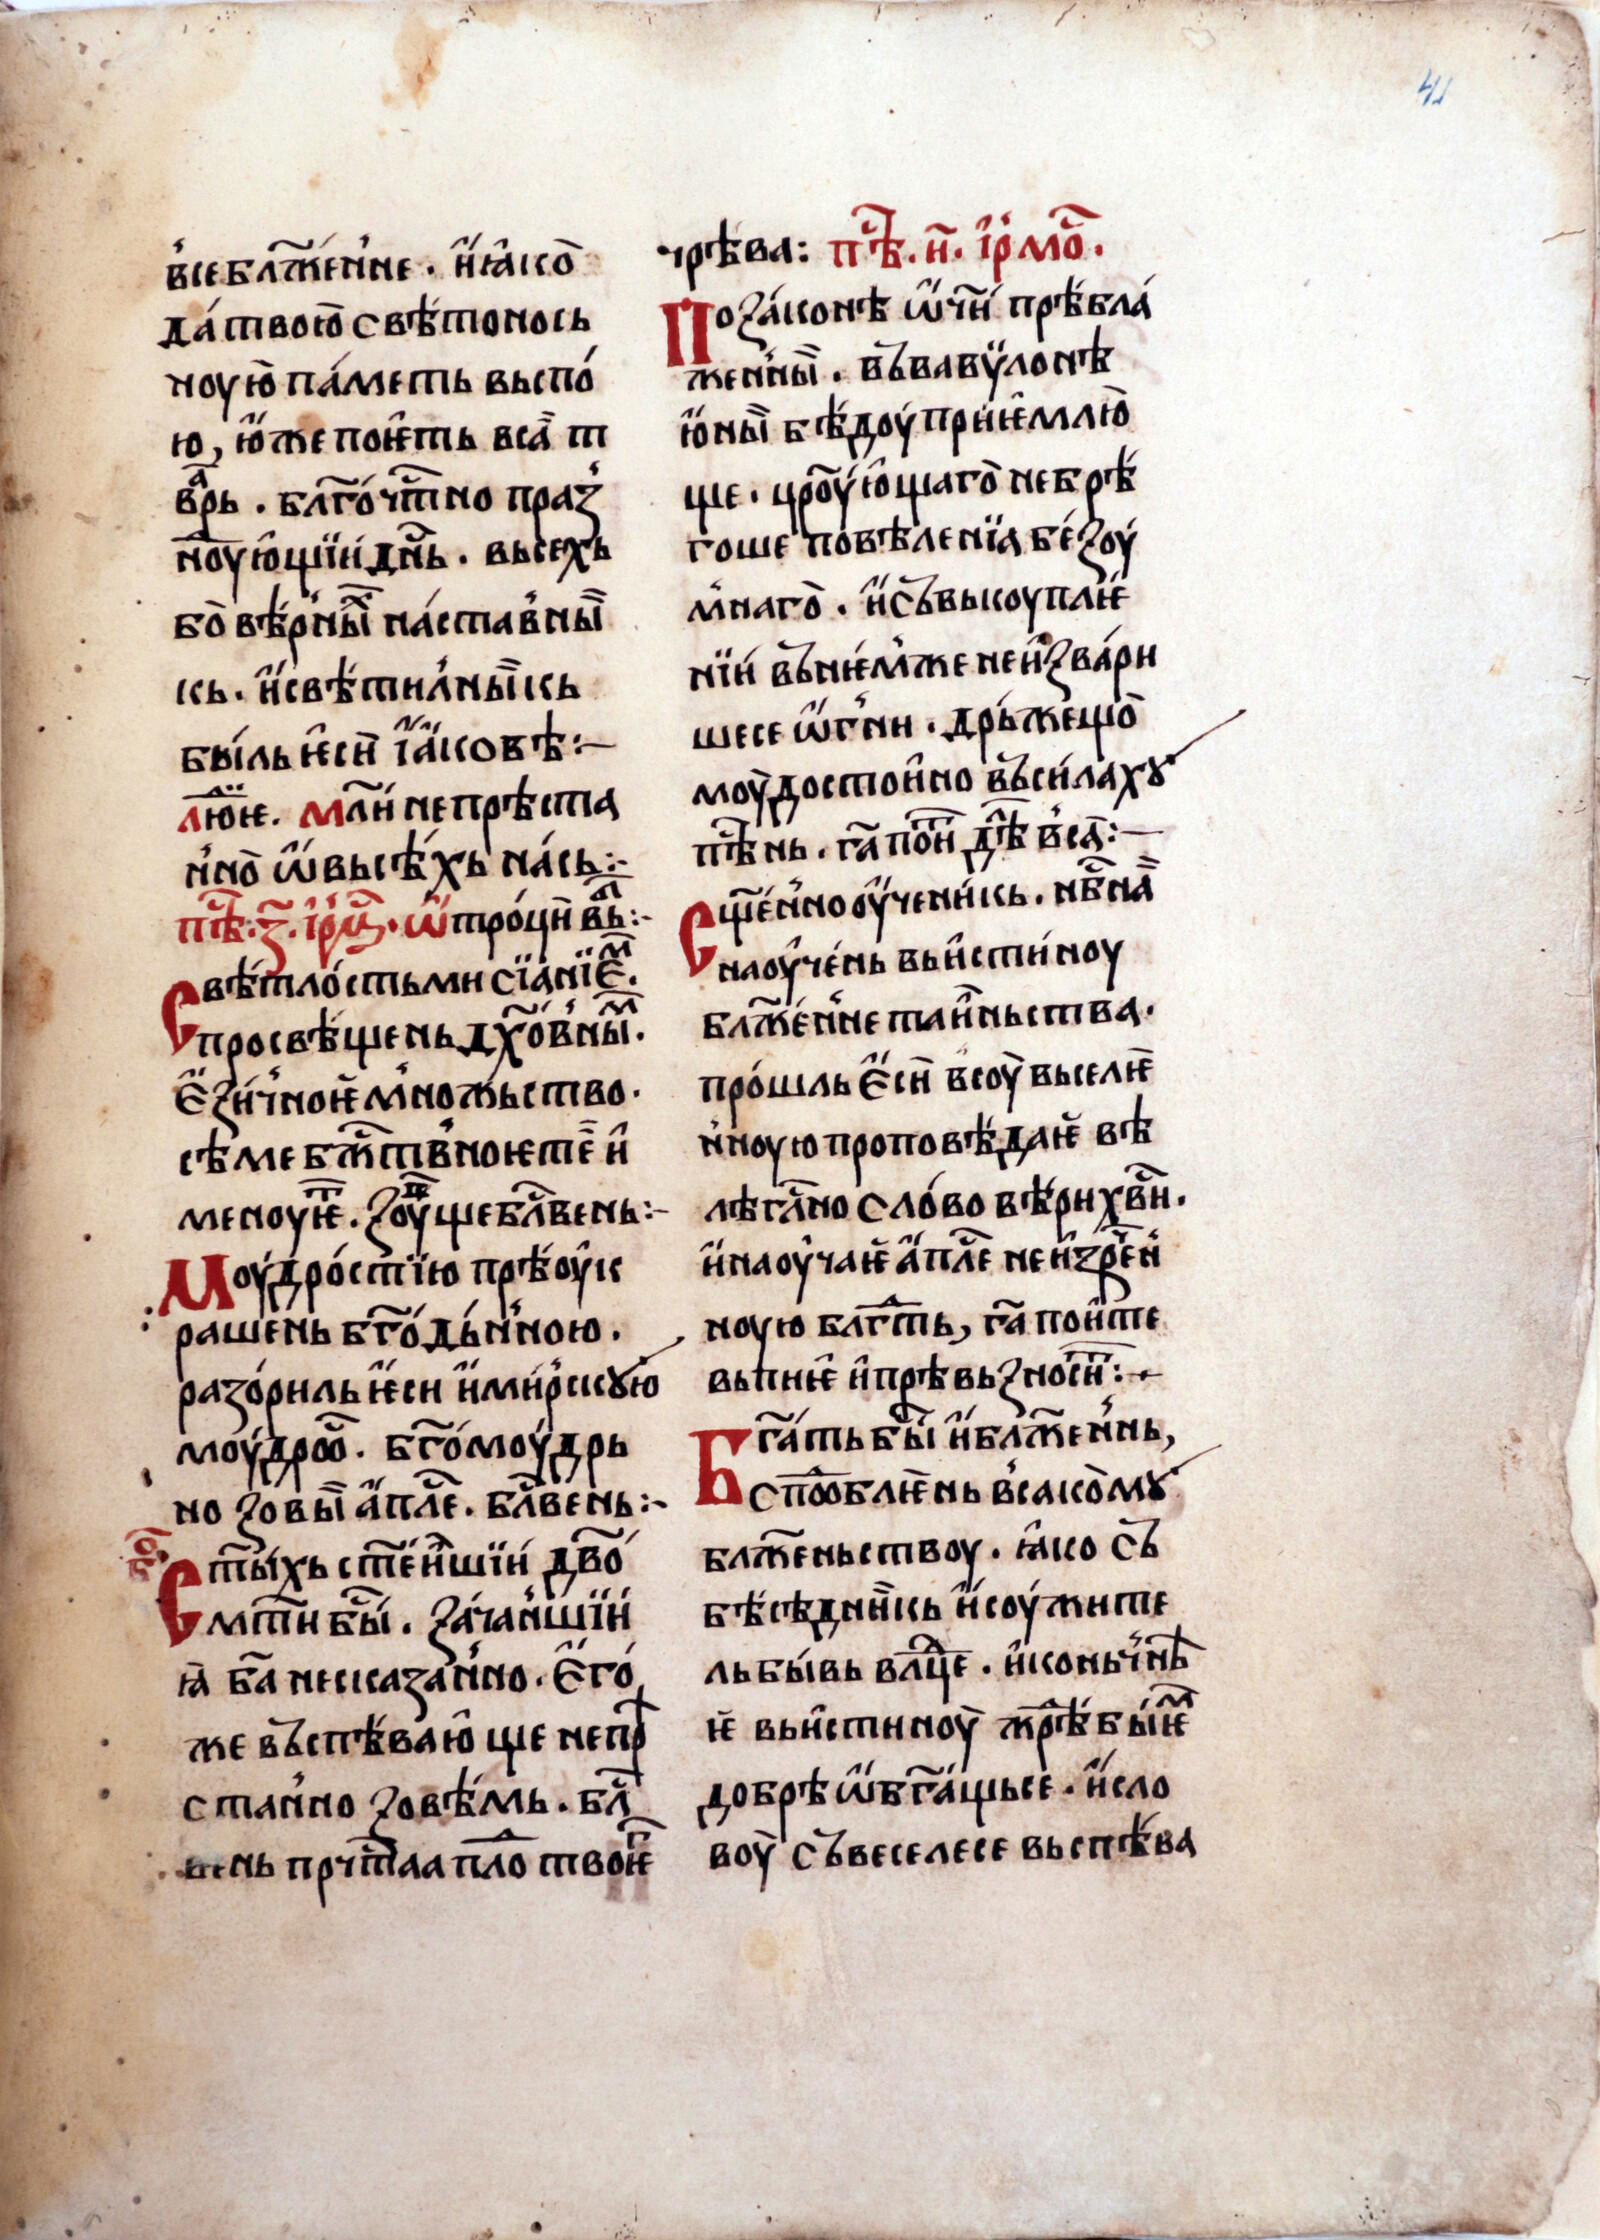 41
всебл҃женне · и҆ꙗко
да твою свѣтонось
ноую паметь въспо
ю, юже поѥть вса т
варь · бл҃гочⷭ҇тно праз
ноующїи дн҃ь · высехь
бо вѣрныⷯ наставны
кь · и҆свѣтилныкь
быль ѥси їаковѣ:–
люⷣѥ. мл҃и непрѣста
нно ѿ высѣхь нась:–
пⷭ҇ѣ · з҃ · їрⷨ · ѿтроци вьⷡ:–
Свѣтлостьми сїанїеⷨ.
просвѣщень дх҃овныⷨ.
Ѥзичноѥ множьство.
сѣме бжⷭ҇твноѥ те и
меноуѥⷮ. зовоуще блⷭ҇вень:–
Моудростїю прѣоук
рашень бг҃одьнною.
разориль ѥси и҆мирскꙋю
моудроⷭ҇. бг҃омоудрь
но зовы а҆пⷭ҇ле. блⷭ҇вень:–
боⷢ҇. Ст҃ыхь ст҃еншїи дв҃о
мт҃и бⷭ҇ы. зачаншїи
ꙗ б҃а несказанно. Ѥго
же въспѣвающе непрⷭ҇
станно зовѣмь. блⷭ҇
вень прчⷭ҇таа плⷣо твоѥⷢ҇
чрѣва: пⷭ҇ѣ. и҃. їрмоⷭ҇.
Позаконѣ ѿч҃и прѣбла
женны. въвавѷлонѣ
юны бѣдоу приѥмлю
ще. цр҃оующаго небрѣ
гоше повѣленїа безоу
мнаго. и҆съвькоуплѥ
нїи въниемже неизвари
шесе ѡгни. дрьжещо
моу достоино въсилахꙋ
пⷭ҇ѣнь. г҃а поиⷮ дⷭ҇ѣ вса:–
Сщ҃енно оученикь. нб҃на
наоучень выистиноу
бл҃женне таиньства.
прошль ѥси всоу выселѥ
нноую проповѣдаѥ вѣ
лѣглⷭ҇но слово вѣри хвⷭ҇и.
и҆наоучаѥ а҆пⷭ҇ле неизрⷱ҇ен
ноую блгⷣть, г҃а поите
выпиѥ и҆прѣвьзносиⷮ:–
Бг҃ать бⷭ҇ы и҆бл҃женнь,
споⷣбблѥнь всакомꙋ
бл҃женьствоу. ꙗко съ
бесѣдникь и҆соужите
ль бывь влⷣце. и҆коньчнѣ
ѥ выистиноу жрⷣѣбыѥⷨ
добрѣ ѡ҆бг҃ащьсе. и҆сло
воу съвеселесе вьспѣва